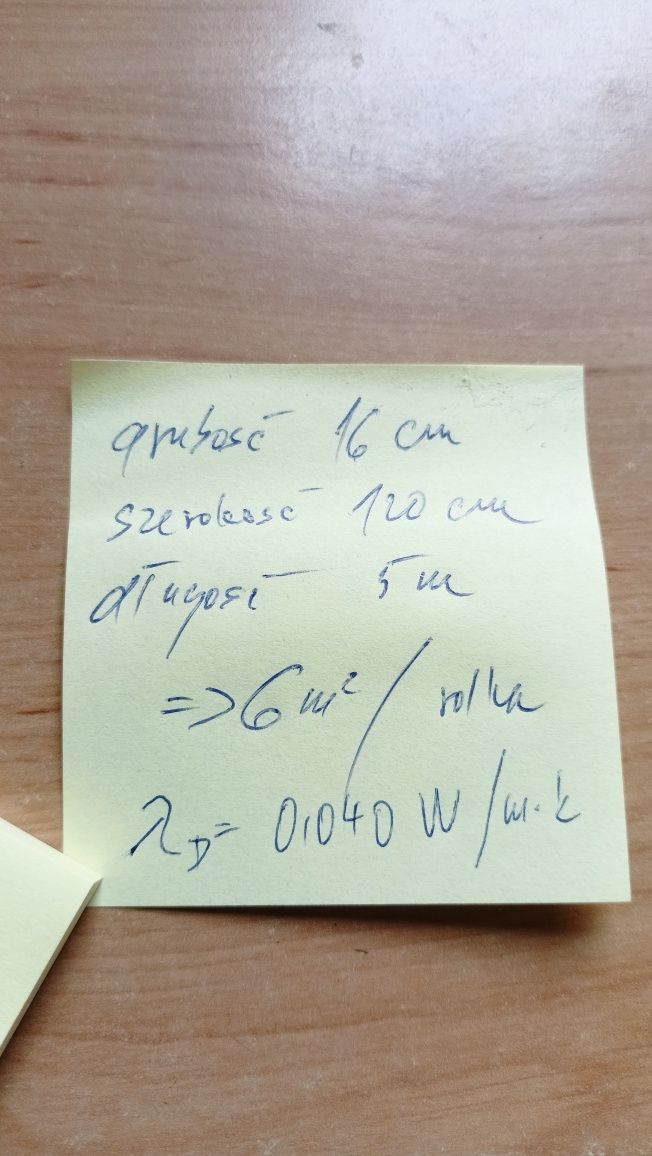 grubość 16 cm
szerokość 120 cm
długość 5 m
=> 6 m² / rolka
λD = 0,040 W/m·k